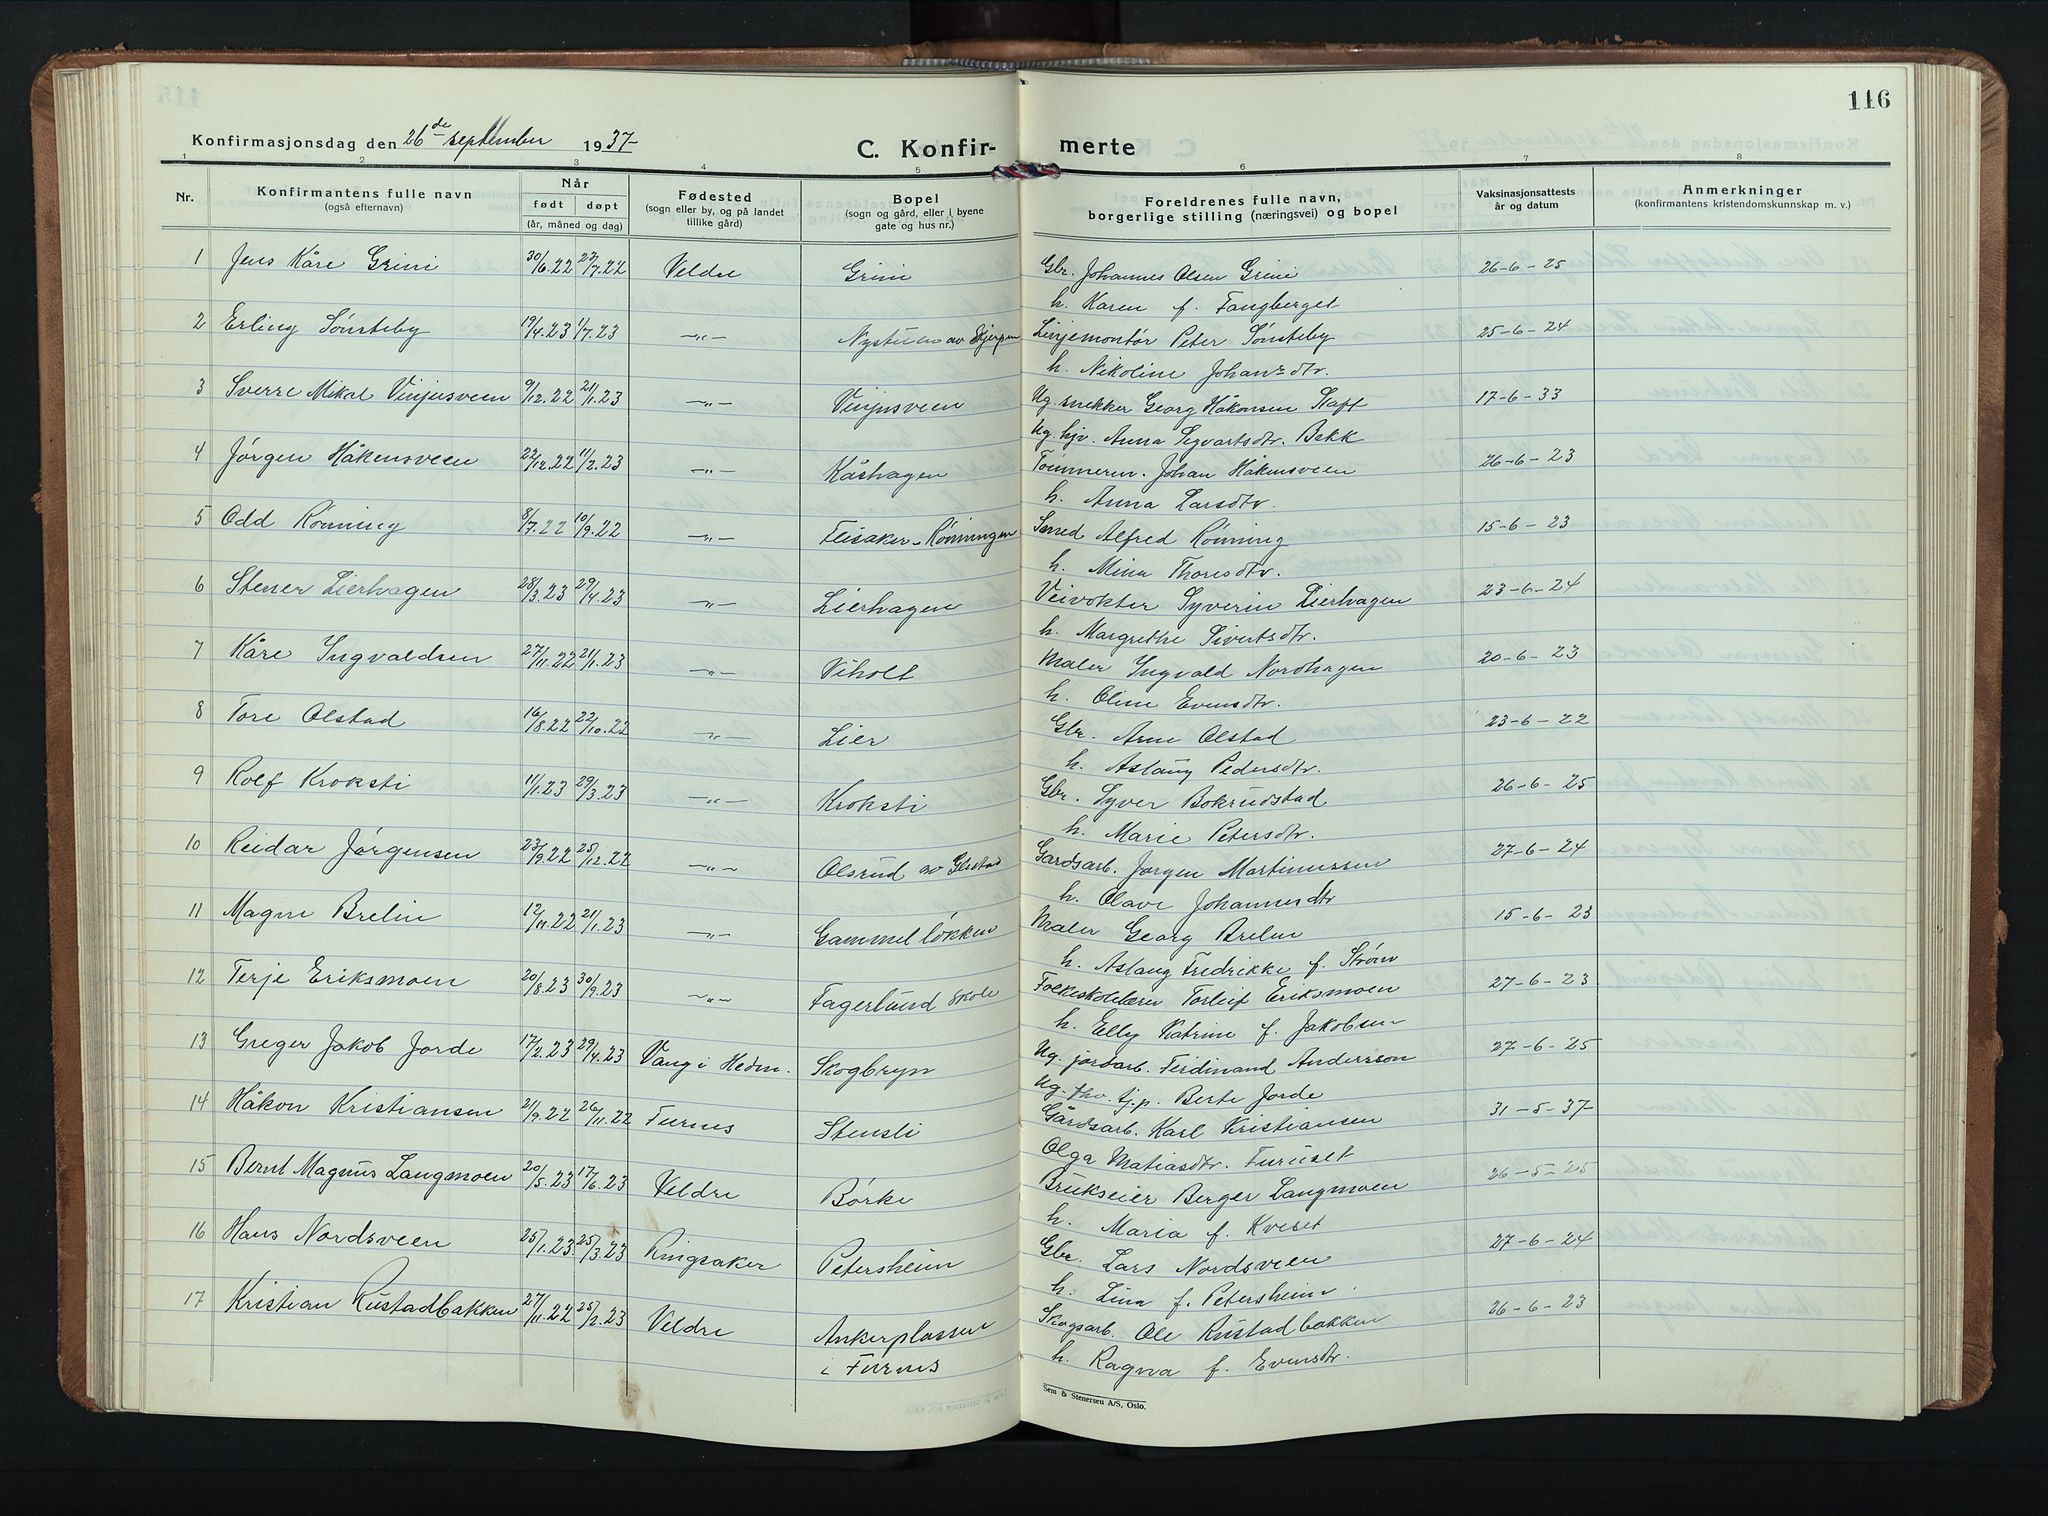 116
Konfirmasjonsdag den 26de september 1937-
C. Konfir- merte
1 2 3 4 5 6 7 8
Nr. Konfirmantens fulle navn (også efternavn) Når født døpt (år, måned og dag) Fødested (sogn eller by, og på landet tillike gård) Bopel (sogn og gård, eller i byene gate og hus nr.) Foreldrenes fulle navn, borgerlige stilling (næringsvei) og bopel Vaksinasjonsattests år og datum Anmerkninger (konfirmantens kristendomskunnskap m. v.)
1 Jens Kåre Grini 30/6.22 23/7.22 Veldre Grini Gbr. Johannes Olsen Grini 26-6-25
h. Karen f. Fangberget
2 Erling Sønsteby 19/4.23 1/7.23 -"- Nystuen av Skjerpen Linjemontør Peter Sønsteby 25-6-24
h. Nikoline Johansdtr.
3 Sverre Mikal Vinjusveen 9/12.22 21/1.23 -"- Vinjusveen Ug. snekker Georg Håkonsen Staff 17-6-33
Ug. hjv. Anna Sigvartsdtr. Bekk
4 Jørgen Håkensveen 22/12.22 11/2.23 -"- Kåshagen Tømmerm. Johan Håkensveen 26-6-23
h. Anna Larsdtr.
5 Odd Rønning 8/7.22 10/9.22 -"- Fleisaker-Rønningen Smed Alfred Rønning 15-6-23
h. Mina Thoresdtr.
6 Stener Lierhagen 28/3.23 29/4.23 -"- Lierhagen Veivokter Syverin Lierhagen 23-6-24
h. Margrethe Sivertsdtr.
7 Kåre Ingvaldsen 27/11.22 21/1.23 -"- Viholt Maler Ingvald Nordhagen 20-6-23
h. Oline Evensdtr.
8 Tore Olstad 16/8.22 22/10.22 -"- Lier Gbr. Arne Olstad 23-6-22
h. Aslaug Pedersdtr.
9 Rolf Kroksti 11/1.23 29/3.23 -"- Kroksti Gbr. Syver Bokrudstad 26-6-25
h. Marie Petersdtr.
10 Reidar Jørgensen 23/9.22 25/12.22 -"- Olsrud av Glestad Gardsarb. Jørgen Martinussen 27-6-24
h. Olave Johannesdtr
11 Magne Brelin 12/11.22 21/1.23 -"- Gammelløkken Maler Georg Brelin 15-6-23
h. Aslaug Fredrikke f. Strøm
12 Terje Eriksmoen 20/8.23 30/9.23 -"- Fagerlund skole Folkeskolelærer Torleif Eriksmoen 27-6-23
h. Elly Katrine f. Jakobsen
13 Greger Jakob Jorde 17/2.23 29/4.23 Vang i Hedm. Skogbryn Ug. jordarb. Ferdinand Andersson 27-6-25
Ug. thv. tj.p. Berte Jorde
14 Håkon Kristiansen 21/9.22 26/11.22 Furnes Stensli Gårdsarb. Karl Kristiansen 31-5-37-
Olga Matiasdtr. Furuset
15 Bernt Magnus Langmoen 20/5.23 17/6.23 Veldre Børke Brukseier Berger Langmoen 26-5-25
h. Maria f. Kveset
16 Hans Nordsveen 25/1.23 25/3.23 Ringsaker Petersheim Gbr. Lars Nordsveen 27-6-24
h. Lina f. Petersheim
17 Kristian Rustadbakken 27/11.22 25/2.23 Veldre Ankerplassen i Furnes Skogsarb. Ole Rustadbakken 26-6-23
h. Ragna f. Evensdtr.
Sem & Stenersen A/S, Oslo.